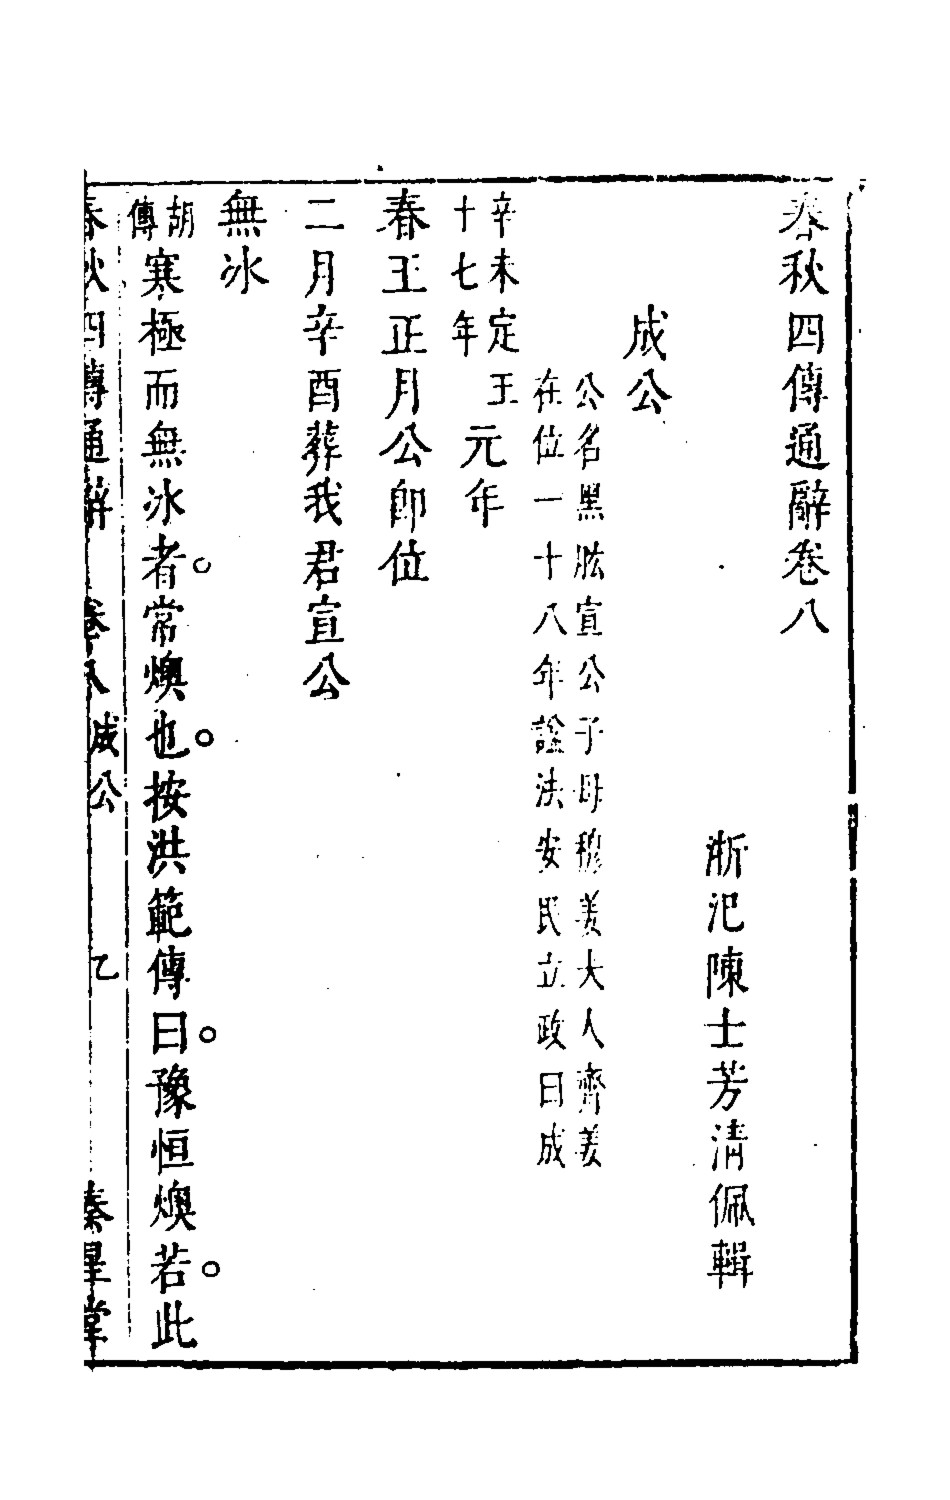 春秋四傳通辭卷八
浙汜陳士芳清佩輯
成公
公名黑肱宣公子母穆姜夫人齊姜
在位一十八年諡法安民立政曰成
辛未定王
十七年
元年
春王正月公卽位
二月辛酉葬我君宣公
無冰
胡傳
寒極而無冰者常燠也按洪範傳曰豫恒燠若此
春秋四傳通辭 卷八 成公 乙